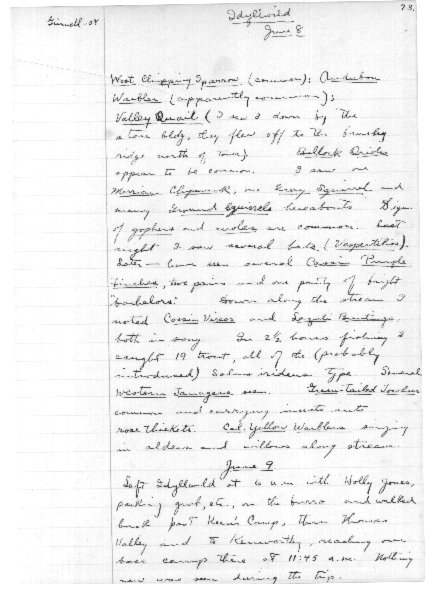 Grinnell-08
Idyllwild
73.
June 8
West Chipping Sparrow (common); Audubon
Warbler (apparently common);
Valley Quail (I saw 2 down by the
store bldg, they flew off to the brushy
ridge north of town). Bullock Orioles
appear to be common. I saw one
Merriam Chipmunk, one Gray Squirrel and
many Ground Squirrels hereabouts. Signs
of gophers and moles are common. Last
night I saw several bats (Vespertilios).
Later - have seen several Cassin Purple
Finches, two pairs and one party of bright
"bachelors". Down along the stream I
noted Cassin Vireos and Lazuli Buntings,
both in song. In 2½ hours fishing I
caught 19 trout, all of the (probably
introduced) Salmo irideus type. Several
Western Tanagers seen. Green-tailed Towhees
common and carrying insects into
rose thickets. Cal. Yellow Warblers singing
in alders and willows along stream.
June 9
Left Idyllwild at 6 a.m. with Holly Jones,
packing grub, etc., on the burro and walked
back past Keen's Camp, thru Thomas
Valley and to Kenworthy, reaching our
base camp there at 11:45 a.m. Nothing
new was seen during the trip.